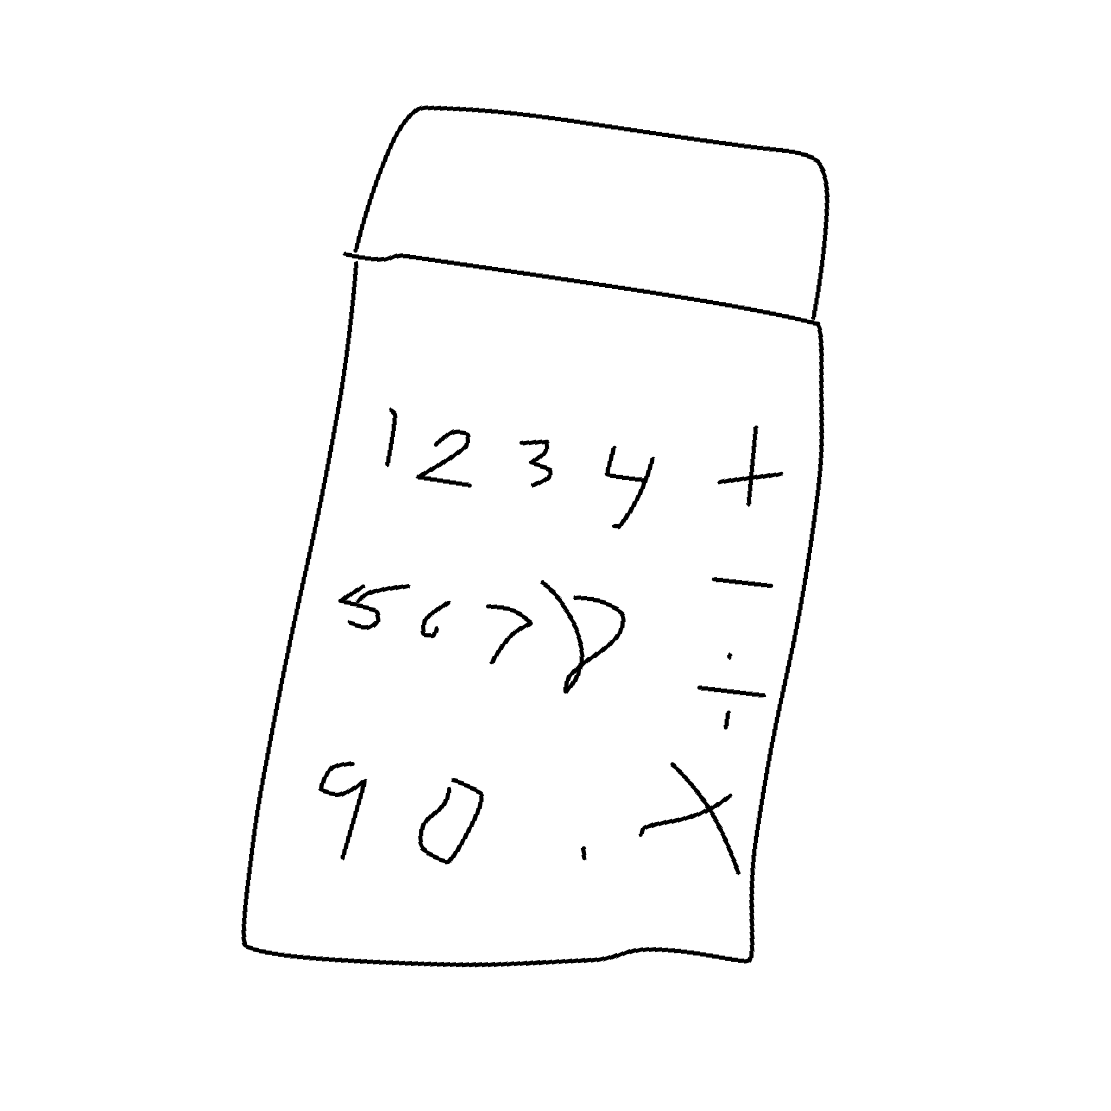 1 2 3 4 +
5 6 7 8 −
÷
9 0 . ×